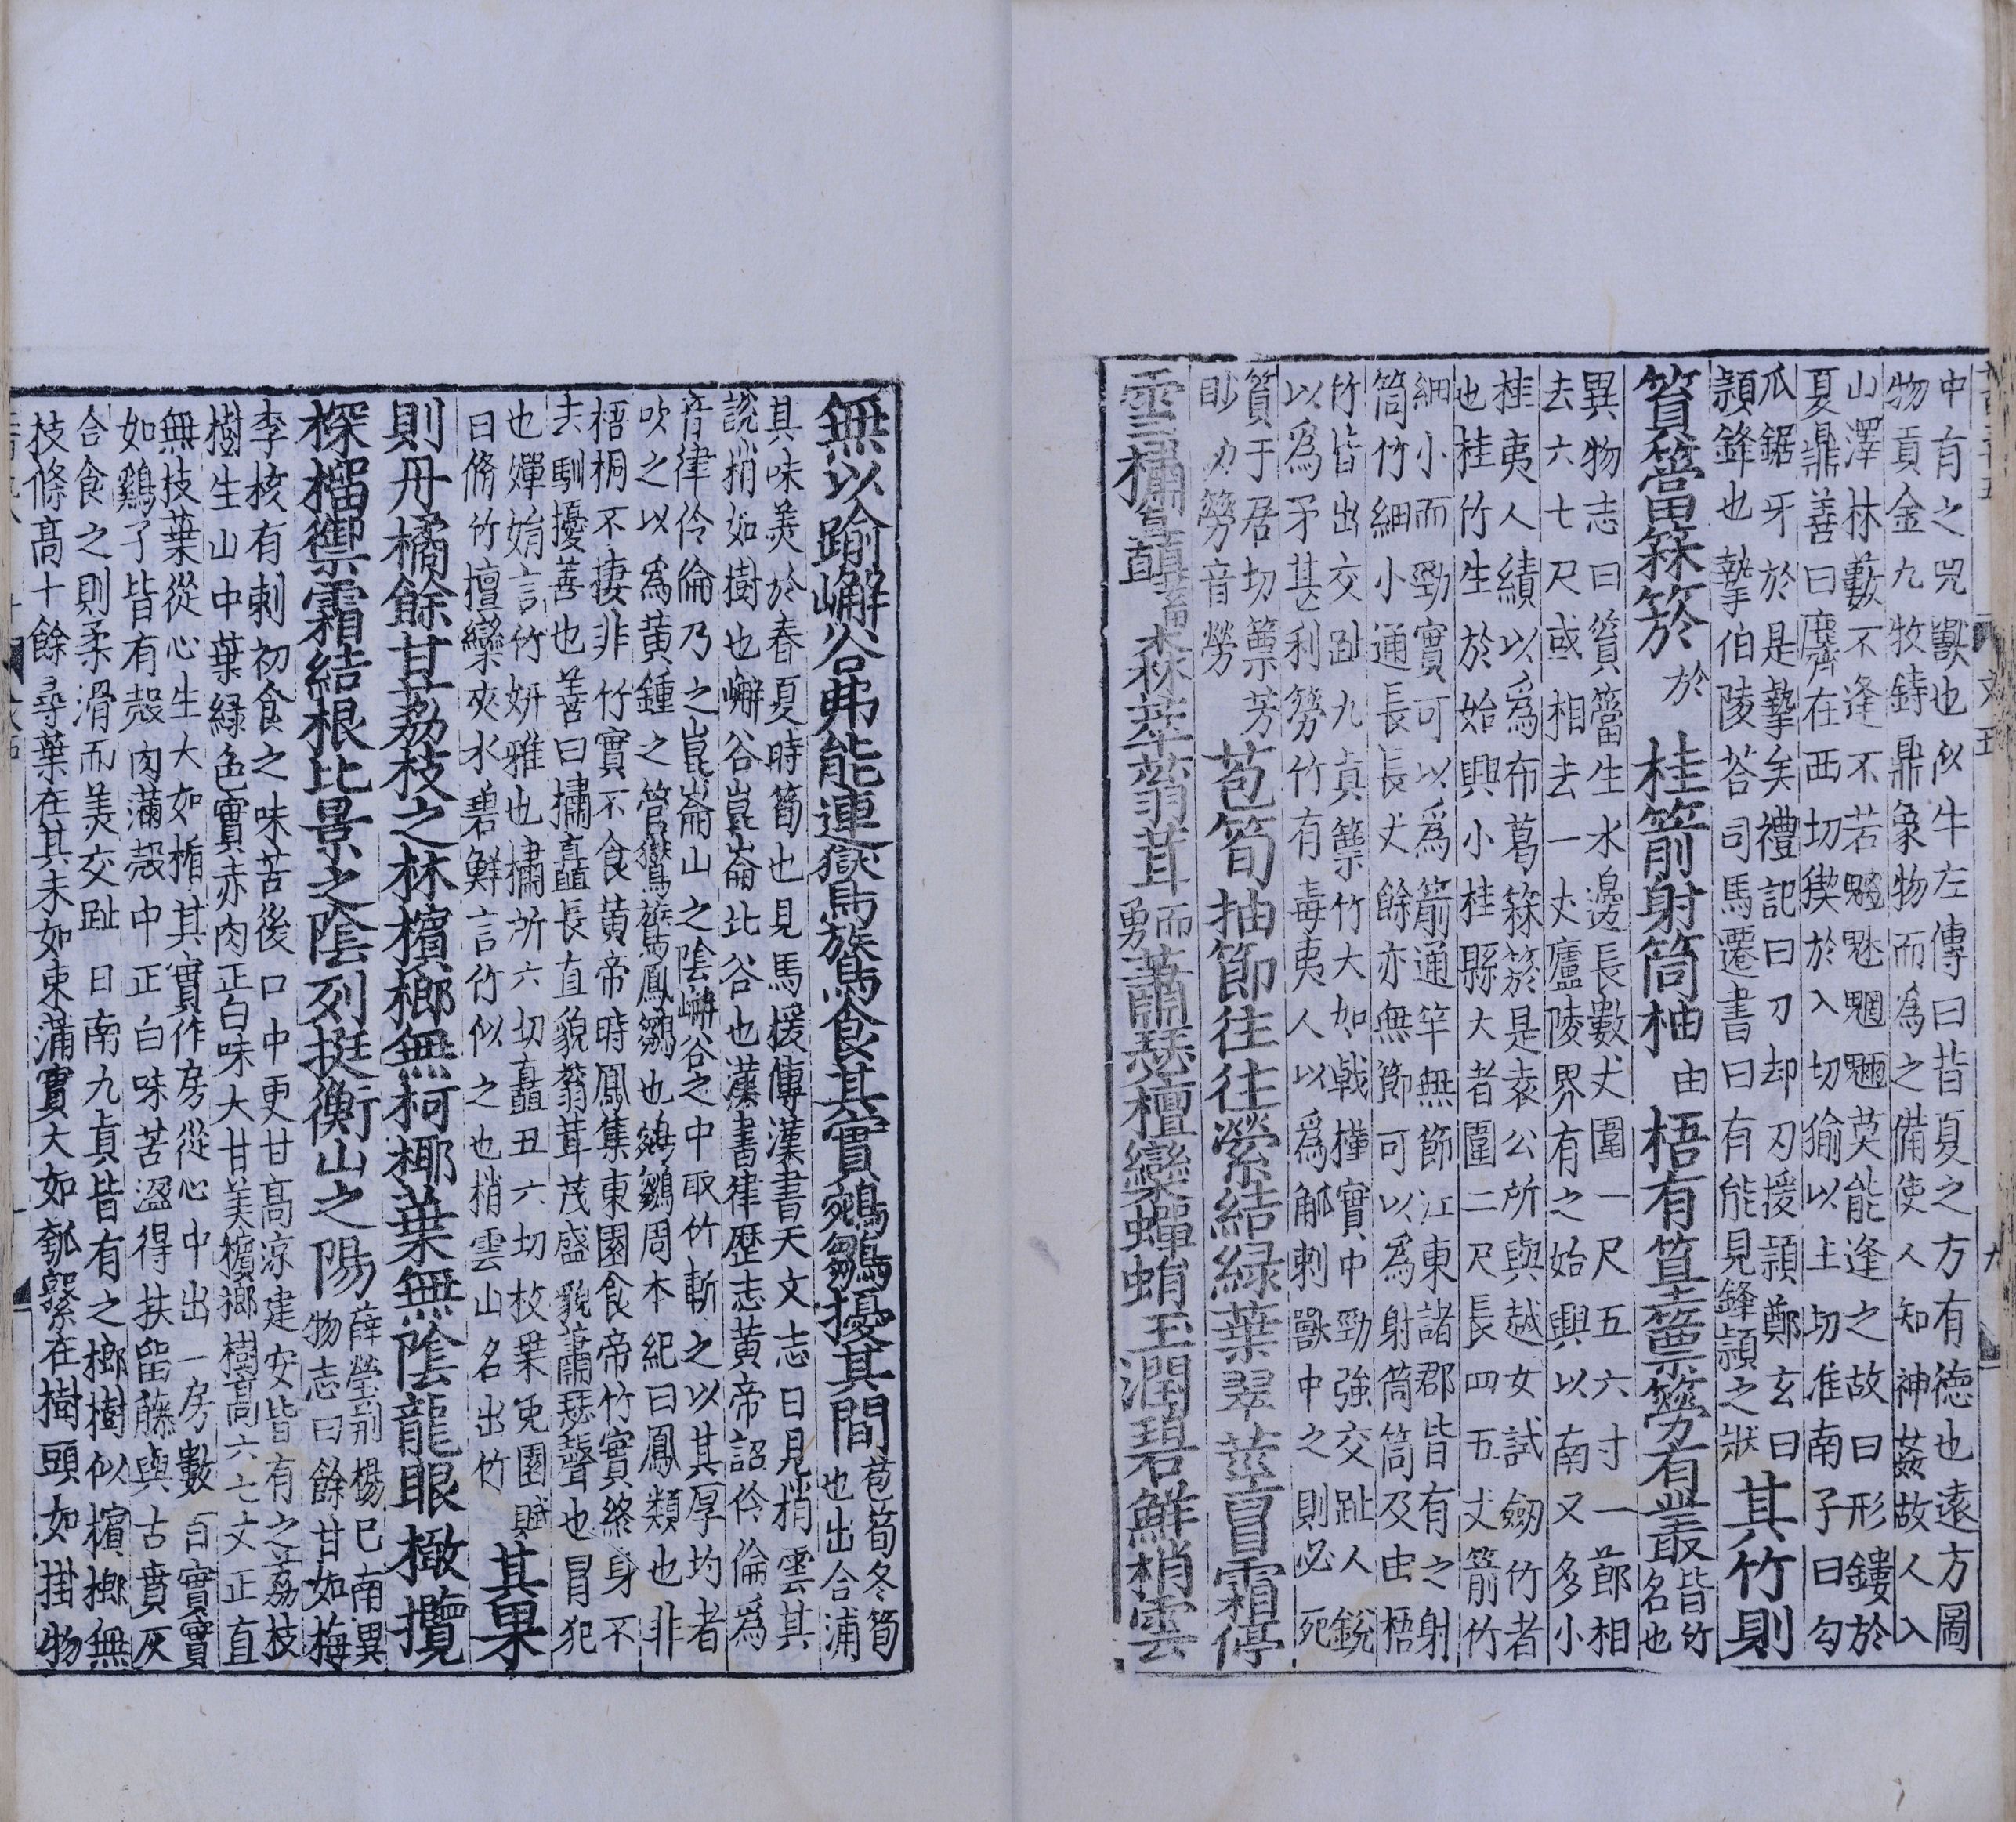 中有之兕獸也似牛左傳曰昔夏之方有德也遠方圖
物貢金九牧鋳鼎象物而為之備使人知神姦故人入
山澤林藪不逢不若魑魅魍魎莫能逢之故曰形鏤於
夏鼎善曰麡齊在西切猰於入切㺄以主切准南子曰勾
爪鋸牙於是摯矣禮記曰刀却刃授潁鄭玄曰
潁鋒也摯伯陵荅司馬遷書曰有能見鋒潁之狀
其竹則
篔簹箖箊於桂箭射筒柚由梧有篁篻簩有叢皆竹名也
異物志曰篔簹生水邊長數丈圍一尺五六寸一節相
去六七尺或相去一丈廬陵界有之始興以南又多小
桂夷人績以為布葛箖箊是袁公所與越女試劒竹者
也桂竹生於始興小桂縣大者圍二尺長四五丈箭竹
細小而勁實可以為箭通竿無節江東諸郡皆有之射
筒竹細小通長長丈餘亦無節可以為射筒筒及由梧
竹皆出交趾九真篻竹大如戟槿實中勁強交趾人銳
以為矛甚利簩竹有毒夷人以為觚刺獸中之則必死
篔于君切篻芳
眇力簩音勞
苞筍抽節往往縈結緑葉翠莖冒霜停
雪橚矗森萃蓊茸而勇蕭瑟檀欒蟬蜎玉潤碧鮮梢雲
無以踰嶰谷弗能連鸑鷟食其實鵷鶵擾其間
苞筍冬筍
也出合浦
其味美於春夏時筍也見馬援傳漢書天文志曰見梢雲其
說梢如樹也嶰谷崑崙北谷也漢書律歷志黃帝詔伶倫為
音律伶倫乃之崑崙山之陰嶰谷之中取竹斬之以其厚均者
吹之以為黃鍾之管鸑鷟鳳鶵也鵷鶵周本紀曰鳳類也非
梧桐不捿非竹實不食黃帝時鳳集東園食帝竹實終身不
去馴擾善也善曰橚矗長直貌蓊茸茂盛貌蕭瑟聲也冒犯
也嬋娟言竹妍雅也橚所六切矗丑六切枚乗兎園賦
曰脩竹檀欒夾水碧鮮言竹似之也梢雲山名出竹
其果
則丹橘餘甘荔枝之林檳榔無柯椰葉無陰龍眼橄欖
探榴禦霜結根比景之陰列挺衡山之陽
薛瑩荊楊已南異
物志曰餘甘如梅
李核有刺初食之味苦後口中更甘高凉建安皆有之荔枝
樹生山中葉緑色實赤肉正白味大甘美檳榔樹高六七丈正直
無枝葉從心生大如楯其實作房從心中出一房數百實實
如鷄子皆有殼肉滿殼中正白味苦澁得扶留藤與古賁灰
合食之則柔滑而美交趾日南九真皆有之榔樹似檳榔無
枝條高十餘尋葉在其末如束蒲實大如瓠繫在樹頭如掛物